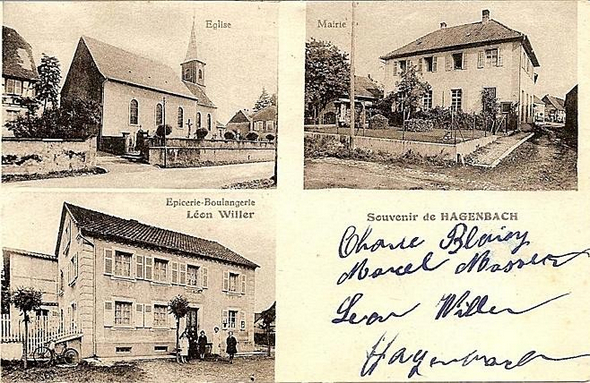 Eglise
Mairie
Epicerie-Boulangerie
Léon Willer
Souvenir de HAGENBACH
Marcel
Léon Willer
Hagenbach